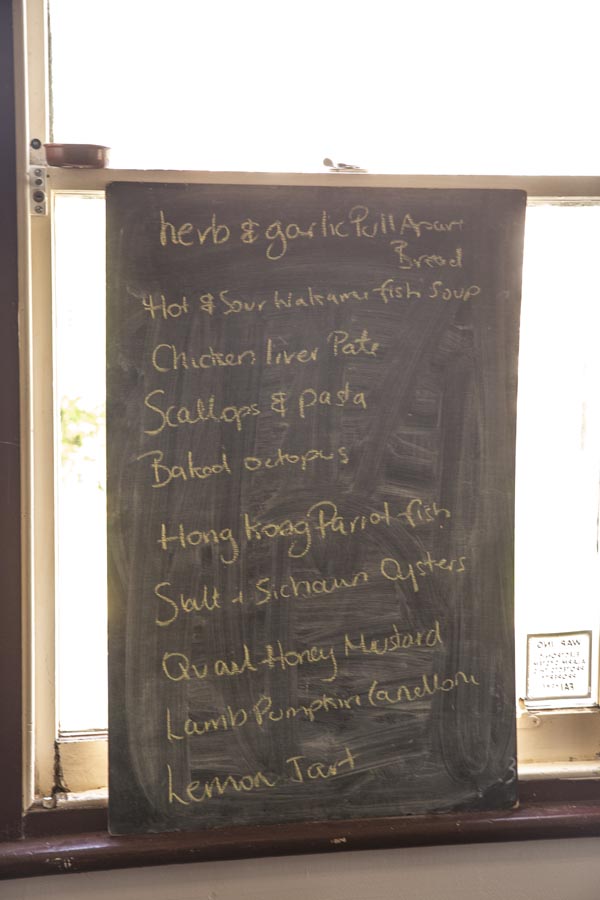 herb & garlic Pull Apart
Bread
Hot & Sour Wakame fish Soup
Chicken liver Pate
Scallops & pasta
Baked octopus
Hong Kong Parrot fish
Salt + Sichaun Oysters
Quail Honey Mustard
Lamb Pumpkin Canelloni
Lemon Tart